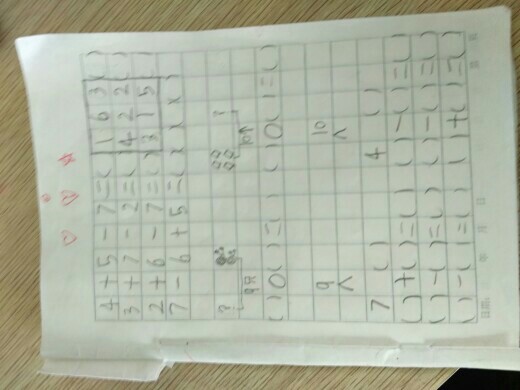 4 + 5 - 7 = ( ) 1 6 3 ( )
3 + 7 - 2 = ( ) 4 2 2
2 + 6 - 7 = ( ) 3 1 5
7 - 6 + 5 = ( ) ( ) ( ) ( )
? ?
9只 10
( )○( )=( ) ( )○( )=( )
9 10
∧ ∧
7 ( ) 4 ( )
( )+( )=( ) ( )-( )=( )
( )-( )=( ) ( )-( )=( )
( )-( )=( ) ( )+( )=( )
年 月 日